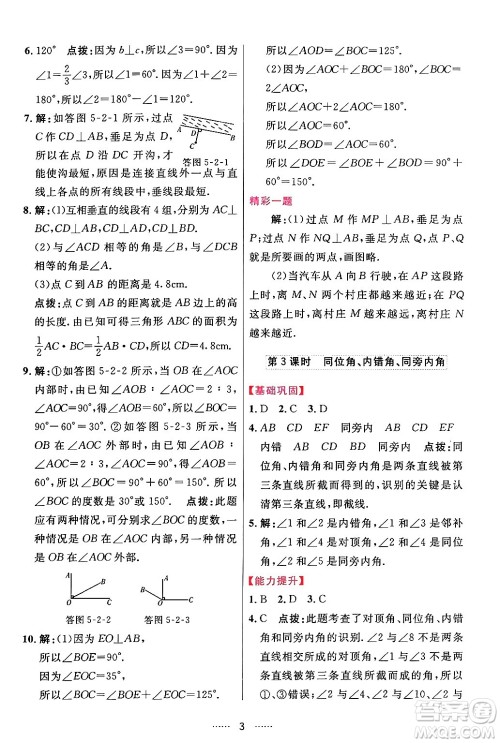 6. 120° 点拨：因为b⊥c，所以∠3＝90°. 因为
∠1＝2/3∠3，所以∠1＝60°. 所以∠2＝
180°－∠1＝180°－60°＝120°.
7. 解：如答图 5-2-1 所示，过点
C 作 CD⊥AB，垂足为点 D，
所以在点 D 沿 DC 开沟，才
能使沟最短，是因为连接直线外一点与直
线上各点的所有线段中，垂线段最短.
答图 5-2-1
8. 解：(1)互相垂直的线段有 4 组，分别为 AC⊥
BC，CD⊥AB，CD⊥AD，CD⊥BD.
(2)与∠ACD 相等的角是∠B，与∠BCD 相
等的角是∠A.
(3)点 C 到直线 AB 的距离是 4.8cm.
点拨：点 C 到 AB 的距离就是边 AB 上的高
的长度. 由已知可得三角形 ABC 的面积为
1/2AC·BC＝1/2AB×4.8cm.
9. 解：①如答图 5-2-2 所示，当 OB 在∠AOC
内部时，由 OA⊥OC，∠AOB：∠AOC＝2：3，
∠AOC＝90°，得∠AOB＝60°，则∠BOC＝
90°－60°＝30°.
②如答图 5-2-3 所示，当 OB 在∠AOC 外
部时，由∠AOB：∠AOC＝2：3，∠AOC＝
90°，得∠AOB＝60°，则∠BOC＝90°＋
60°＝150°.
所以∠BOC 的度数是 30°或 150°. 点拨：此题
应有两种情况，可根据两种情况来求∠BOC
的度数，一种情况是 OB 在∠AOC 内，另一
种情况是 OB 在∠AOC 外.
答图 5-2-2 答图 5-2-3
10. 解：(1)因为 EO⊥AB，
所以∠BOE＝90°.
所以∠BOC＝∠BOE＋∠COE＝125°.
所以∠AOD＝∠BOC＝125°.
(2)因为∠AOC＋∠BOC＝180°，∠BOC＝
2∠AOC，
所以∠AOC＝60°.
所以∠BOD＝∠AOC＝60°.
所以∠DOE＝∠BOE＋∠BOD＝90°＋
60°＝150°.
精彩一题
解：(1)过点 M 作 MP⊥AB，垂足为点 P，过
点 N 作 NQ⊥AB，垂足为点 Q，点 P、点 Q 就
是所要画的两点，画图略.
(2)当汽车从 A 向 B 行驶时，在 AP 这段路
上时，离 M、N 两个村庄都越来越近；在 PQ
这段路上时，离村庄 M 越来越远，离村庄 N
越来越近.
第3课时 同位角、内错角、同旁内角
【基础巩固】
1. D 2. C 3. D
4. AB CD EF 同旁内 AB CD EF
内错 AB CD AC 同旁内 点拨：同位
角、内错角和同旁内角是两条直线被
第三条直线所截形成的，识别的关键是认清
第三条直线，即截线.
5. 解：∠1 和∠2 是内错角，∠1 和∠4 是邻补
角，∠1 和∠3 是同旁内角，∠2 和∠3 是同旁
内角，∠2 和∠4 是同旁内角.
【能力提升】
1. B 2. D 3. C
4. C 点拨：此题考查了对顶角、同位角、内错
角、同旁内角的识别. ∠2 与∠8 是两条直线
被第三条直线所截形成的内错角，所以
①、③错误；∠1 与∠5、∠2 与∠6、∠4 与∠8
3